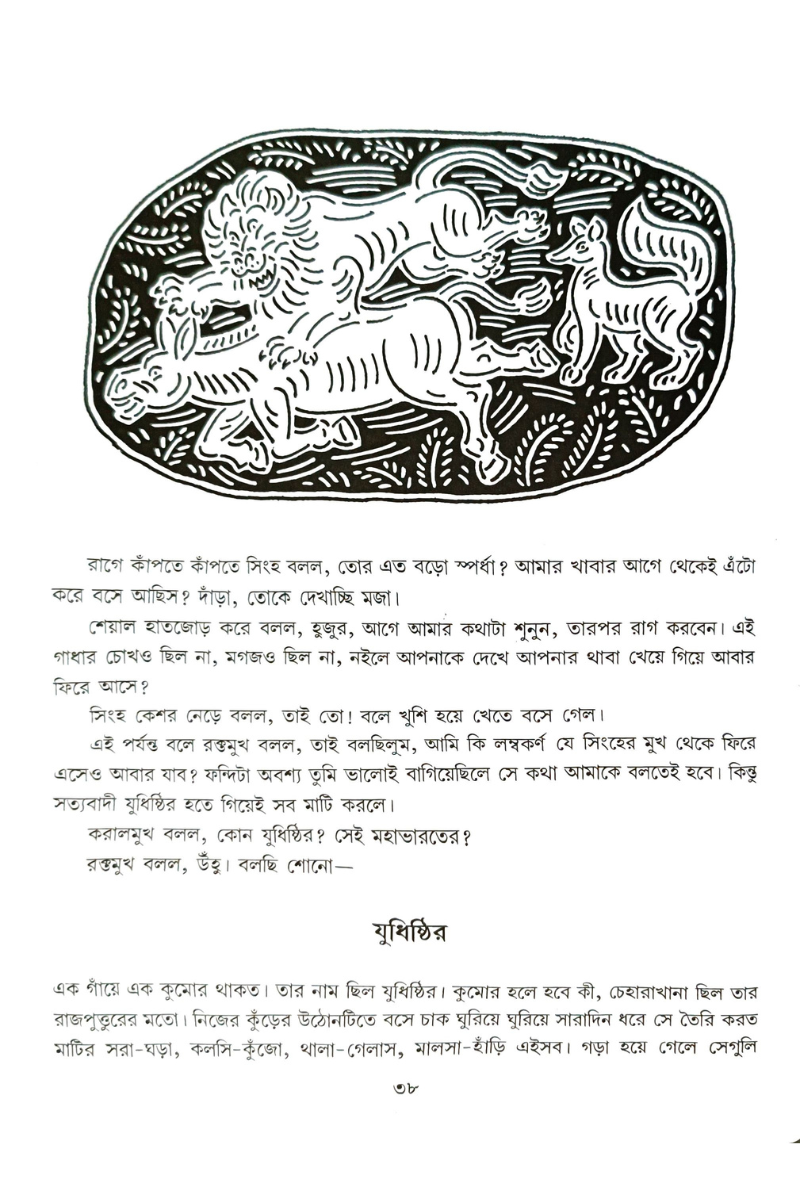 রাগে কাঁপতে কাঁপতে সিংহ বলল, তোর এত বড়ো স্পর্ধা? আমার খাবার আগে থেকেই এঁটো
করে বসে আছিস? দাঁড়া, তোকে দেখাচ্ছি মজা।
শেয়াল হাতজোড় করে বলল, হুজুর, আগে আমার কথাটা শুনুন, তারপর রাগ করবেন। এই
গাধার চোখও ছিল না, মগজও ছিল না, নইলে আপনাকে দেখে আপনার থাবা খেয়ে গিয়ে আবার
ফিরে আসে?
সিংহ কেশর নেড়ে বলল, তাই তো! বলে খুশি হয়ে খেতে বসে গেল।
এই পর্যন্ত বলে রক্তমুখ বলল, তাই বলছিলুম, আমি কি লম্বকর্ণ যে সিংহের মুখ থেকে ফিরে
এসেও আবার যাব? ফন্দিটা অবশ্য তুমি ভালোই বাগিয়েছিলে সে কথা আমাকে বলতেই হবে। কিন্তু
সত্যবাদী যুধিষ্ঠির হতে গিয়েই সব মাটি করলে।
করালমুখ বলল, কোন যুধিষ্ঠির? সেই মহাভারতের?
রক্তমুখ বলল, উঁহু। বলছি শোনো—
যুধিষ্ঠির
এক গাঁয়ে এক কুমোর থাকত। তার নাম ছিল যুধিষ্ঠির। কুমোর হলে হবে কী, চেহারাখানা ছিল তার
রাজপুত্তুরের মতো। নিজের কুঁড়ের উঠোনটিতে বসে চাক ঘুরিয়ে ঘুরিয়ে সারাদিন ধরে সে তৈরি করত
মাটির সরা-ঘড়া, কলসি-কুঁজো, থালা-গেলাস, মালসা-হাঁড়ি এইসব। গড়া হয়ে গেলে সেগুলি
৩৮